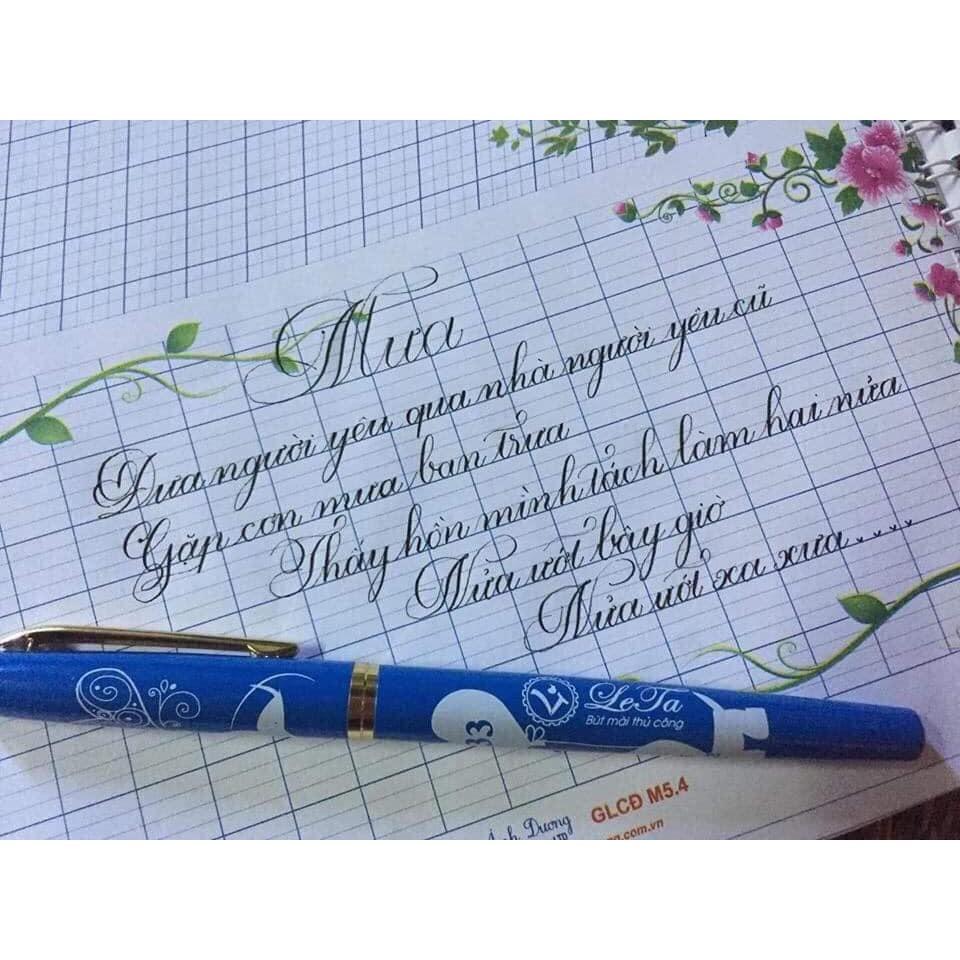 Mưa
Đưa người yêu qua nhà người yêu cũ
Gặp cơn mưa ban trưa
Thấy hồn mình tách làm hai nửa
Nửa ướt bây giờ
Nửa ướt xa xưa....
LeTa
Bút mài thủ công
33
GLCĐ M5.4
Dương
.com.vn